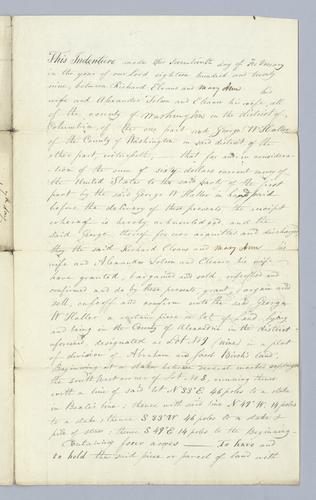 This Indenture made this seventeenth day of February
in the year of our Lord eighteen hundred and twenty
nine, between Richard Evans and Mary Ann his
wife and Alexander Tolson and Eleanor his wife, all
of the county of Washington in the district of
Columbia of the one part and George W Haller
of the County of Washington in said district of the
other part, witnesseth, that for and in considera-
tion of the sum of sixty dollars current money of
the United States to the said parts of the first
part by the said George W Haller in hand paid
before the delivery of these presents the receipt
whereof is hereby acknowledged, and the
said George thereof for ever acquitted and discharged
they the said Richard Evans and Mary Ann his
wife and Alexander Tolson and Eleanor his wife
have granted, bargained and sold, enfeoffed and
confirmed and do by these presents grant, bargain and
sell, enfeoff and confirm unto the said George
W Haller a certain piece or lot of Land, lying
and being in the County of Alexandria in the district
aforesaid, designated as Lot No 9 (nine) in a plat
of division of Abraham and Jacob Birch's land,
Beginning at a stake between several marked saplings
the south east corner of Lot No 8, running thence
with a line of said lot N 33° E 46 poles to a stake
in line; thence with said line N 49° W 14 poles
to a stake; thence S 33° W 46 poles to a stake &
pile of stones; thence S 49° E 14 poles to the Beginning
Containing four acres — To have and
to hold the said piece or parcel of land with